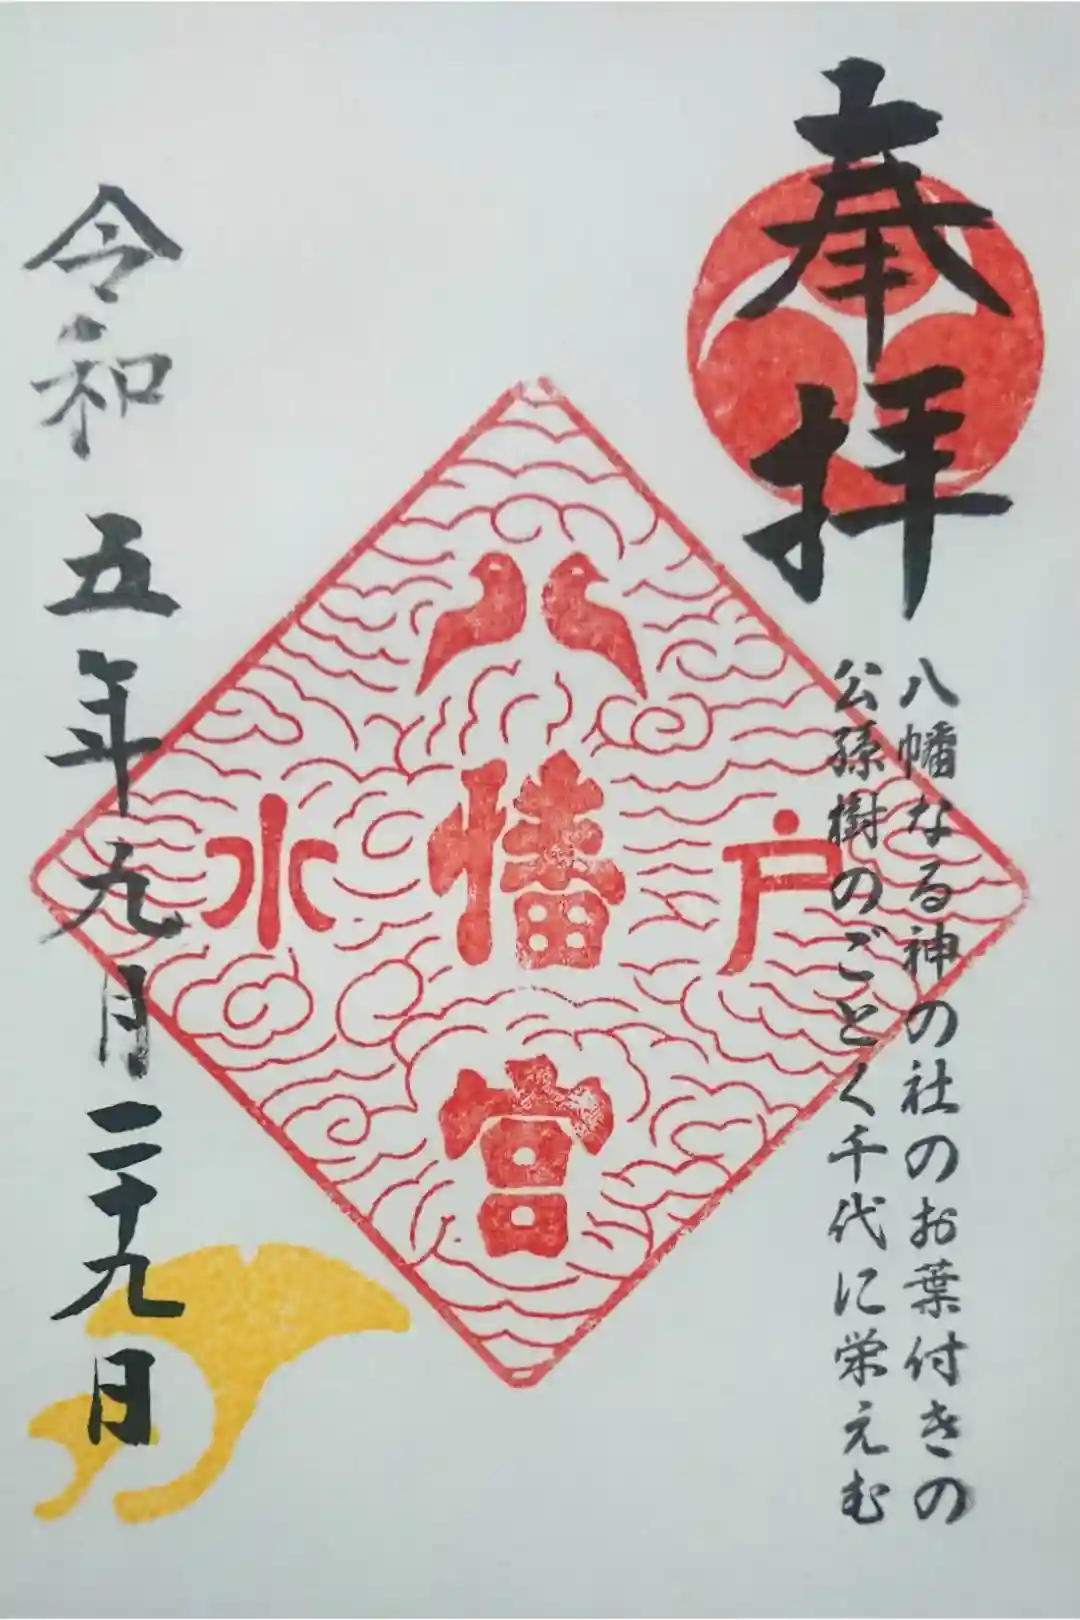 奉拝
八幡なる神の社のお葉付きの
公孫樹のごとく千代に栄えむ
水戸
八幡宮
令和五年九月二十九日